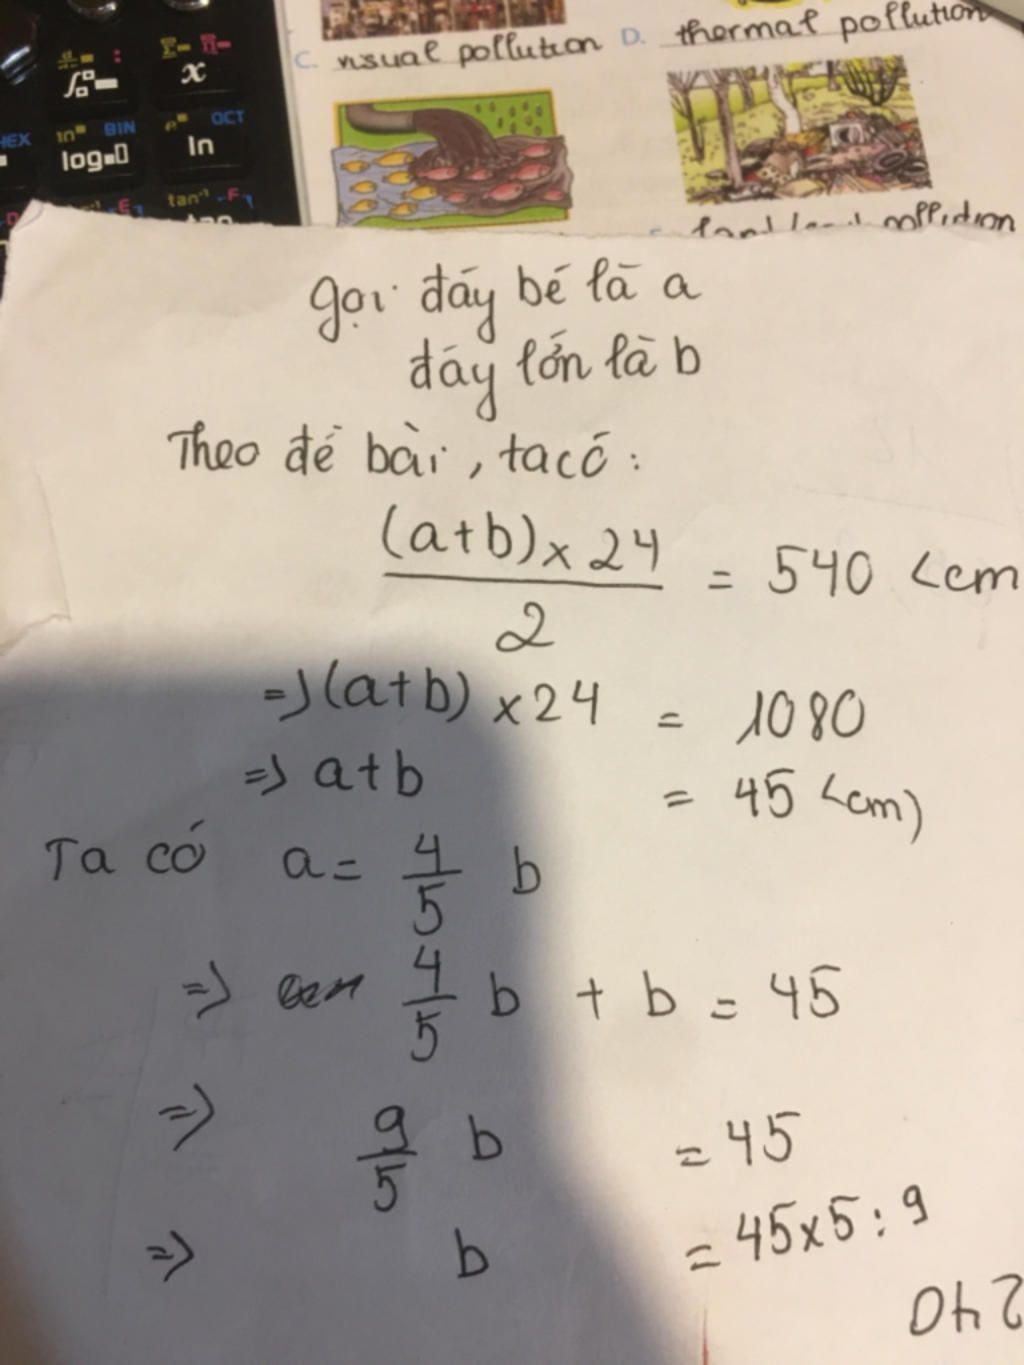 HEX
ln BIN
OCT
log
ln
tan⁻¹
C. visual pollution
D. thermal pollution
pollution
Gọi đáy bé là a
đáy lớn là b
Theo đề bài, ta có:
(a+b) x 24 / 2 = 540 <cm
=> (a+b) x 24 = 1080
=> a+b = 45 <cm)
Ta có a = 4/5 b
=> 4/5 b + b = 45
=> 9/5 b = 45
=> b = 45x5:9
240